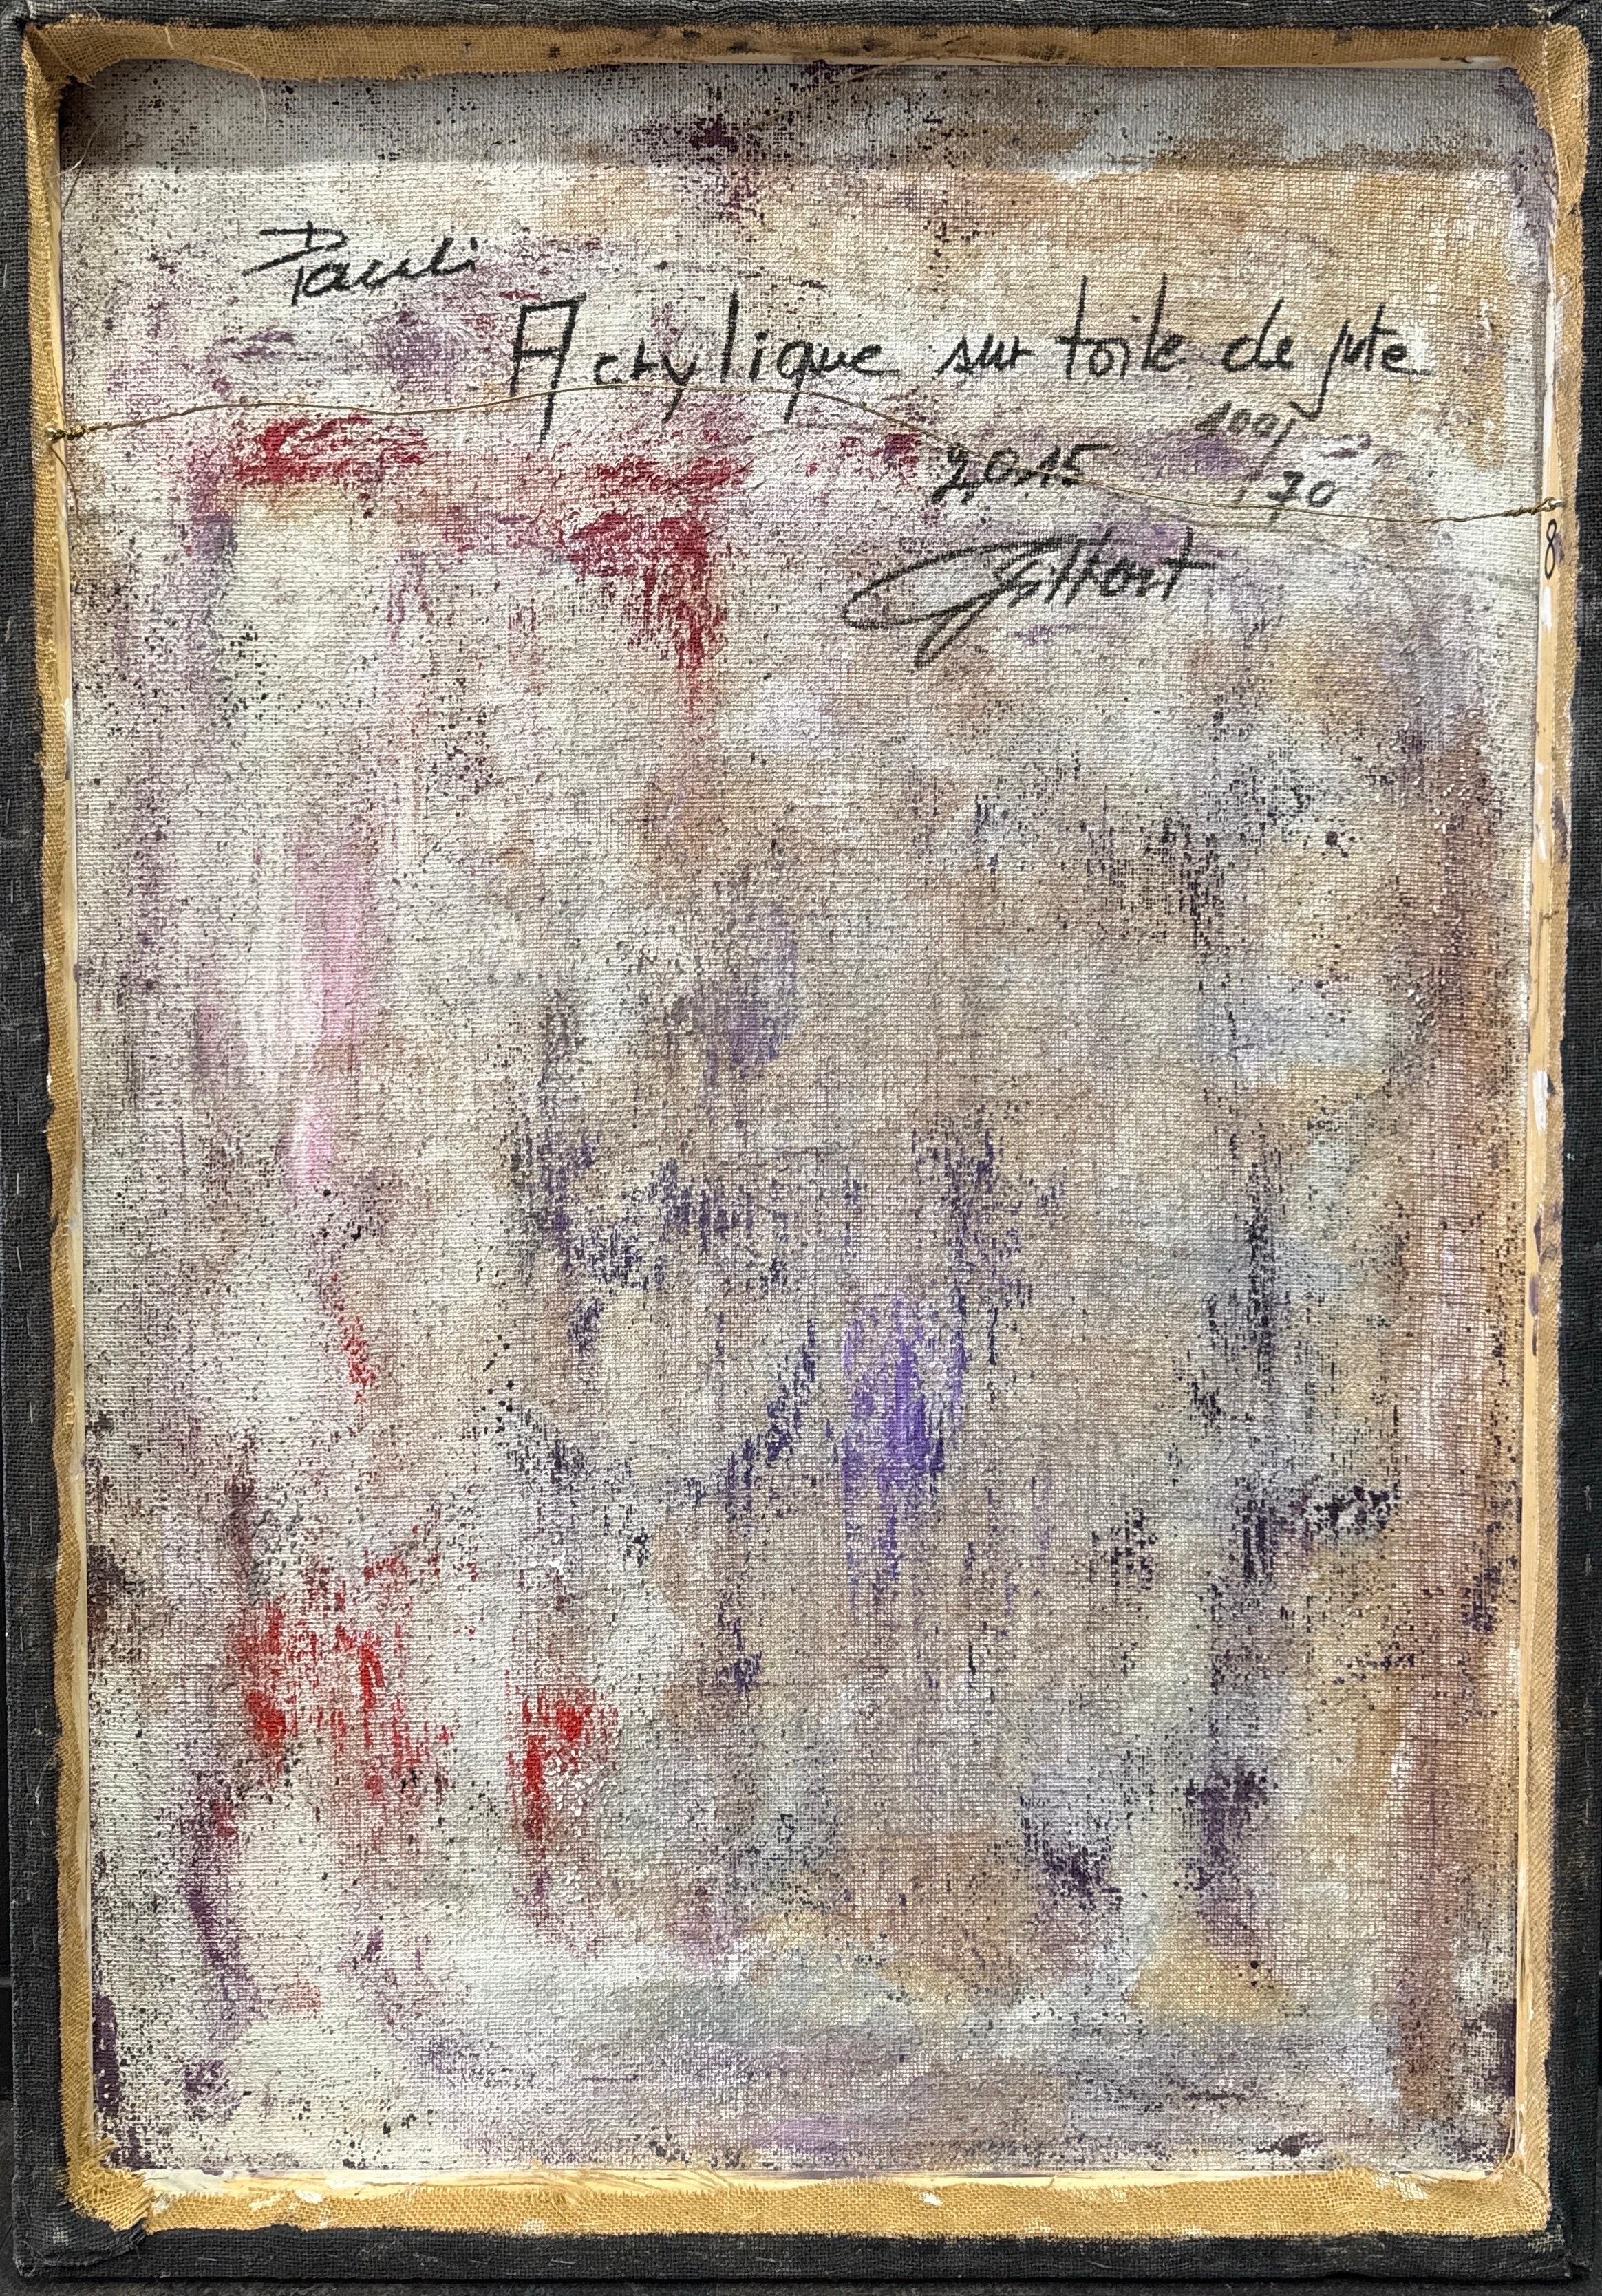 Pauli
Acrylique sur toile de jute
100/
2015 70
8